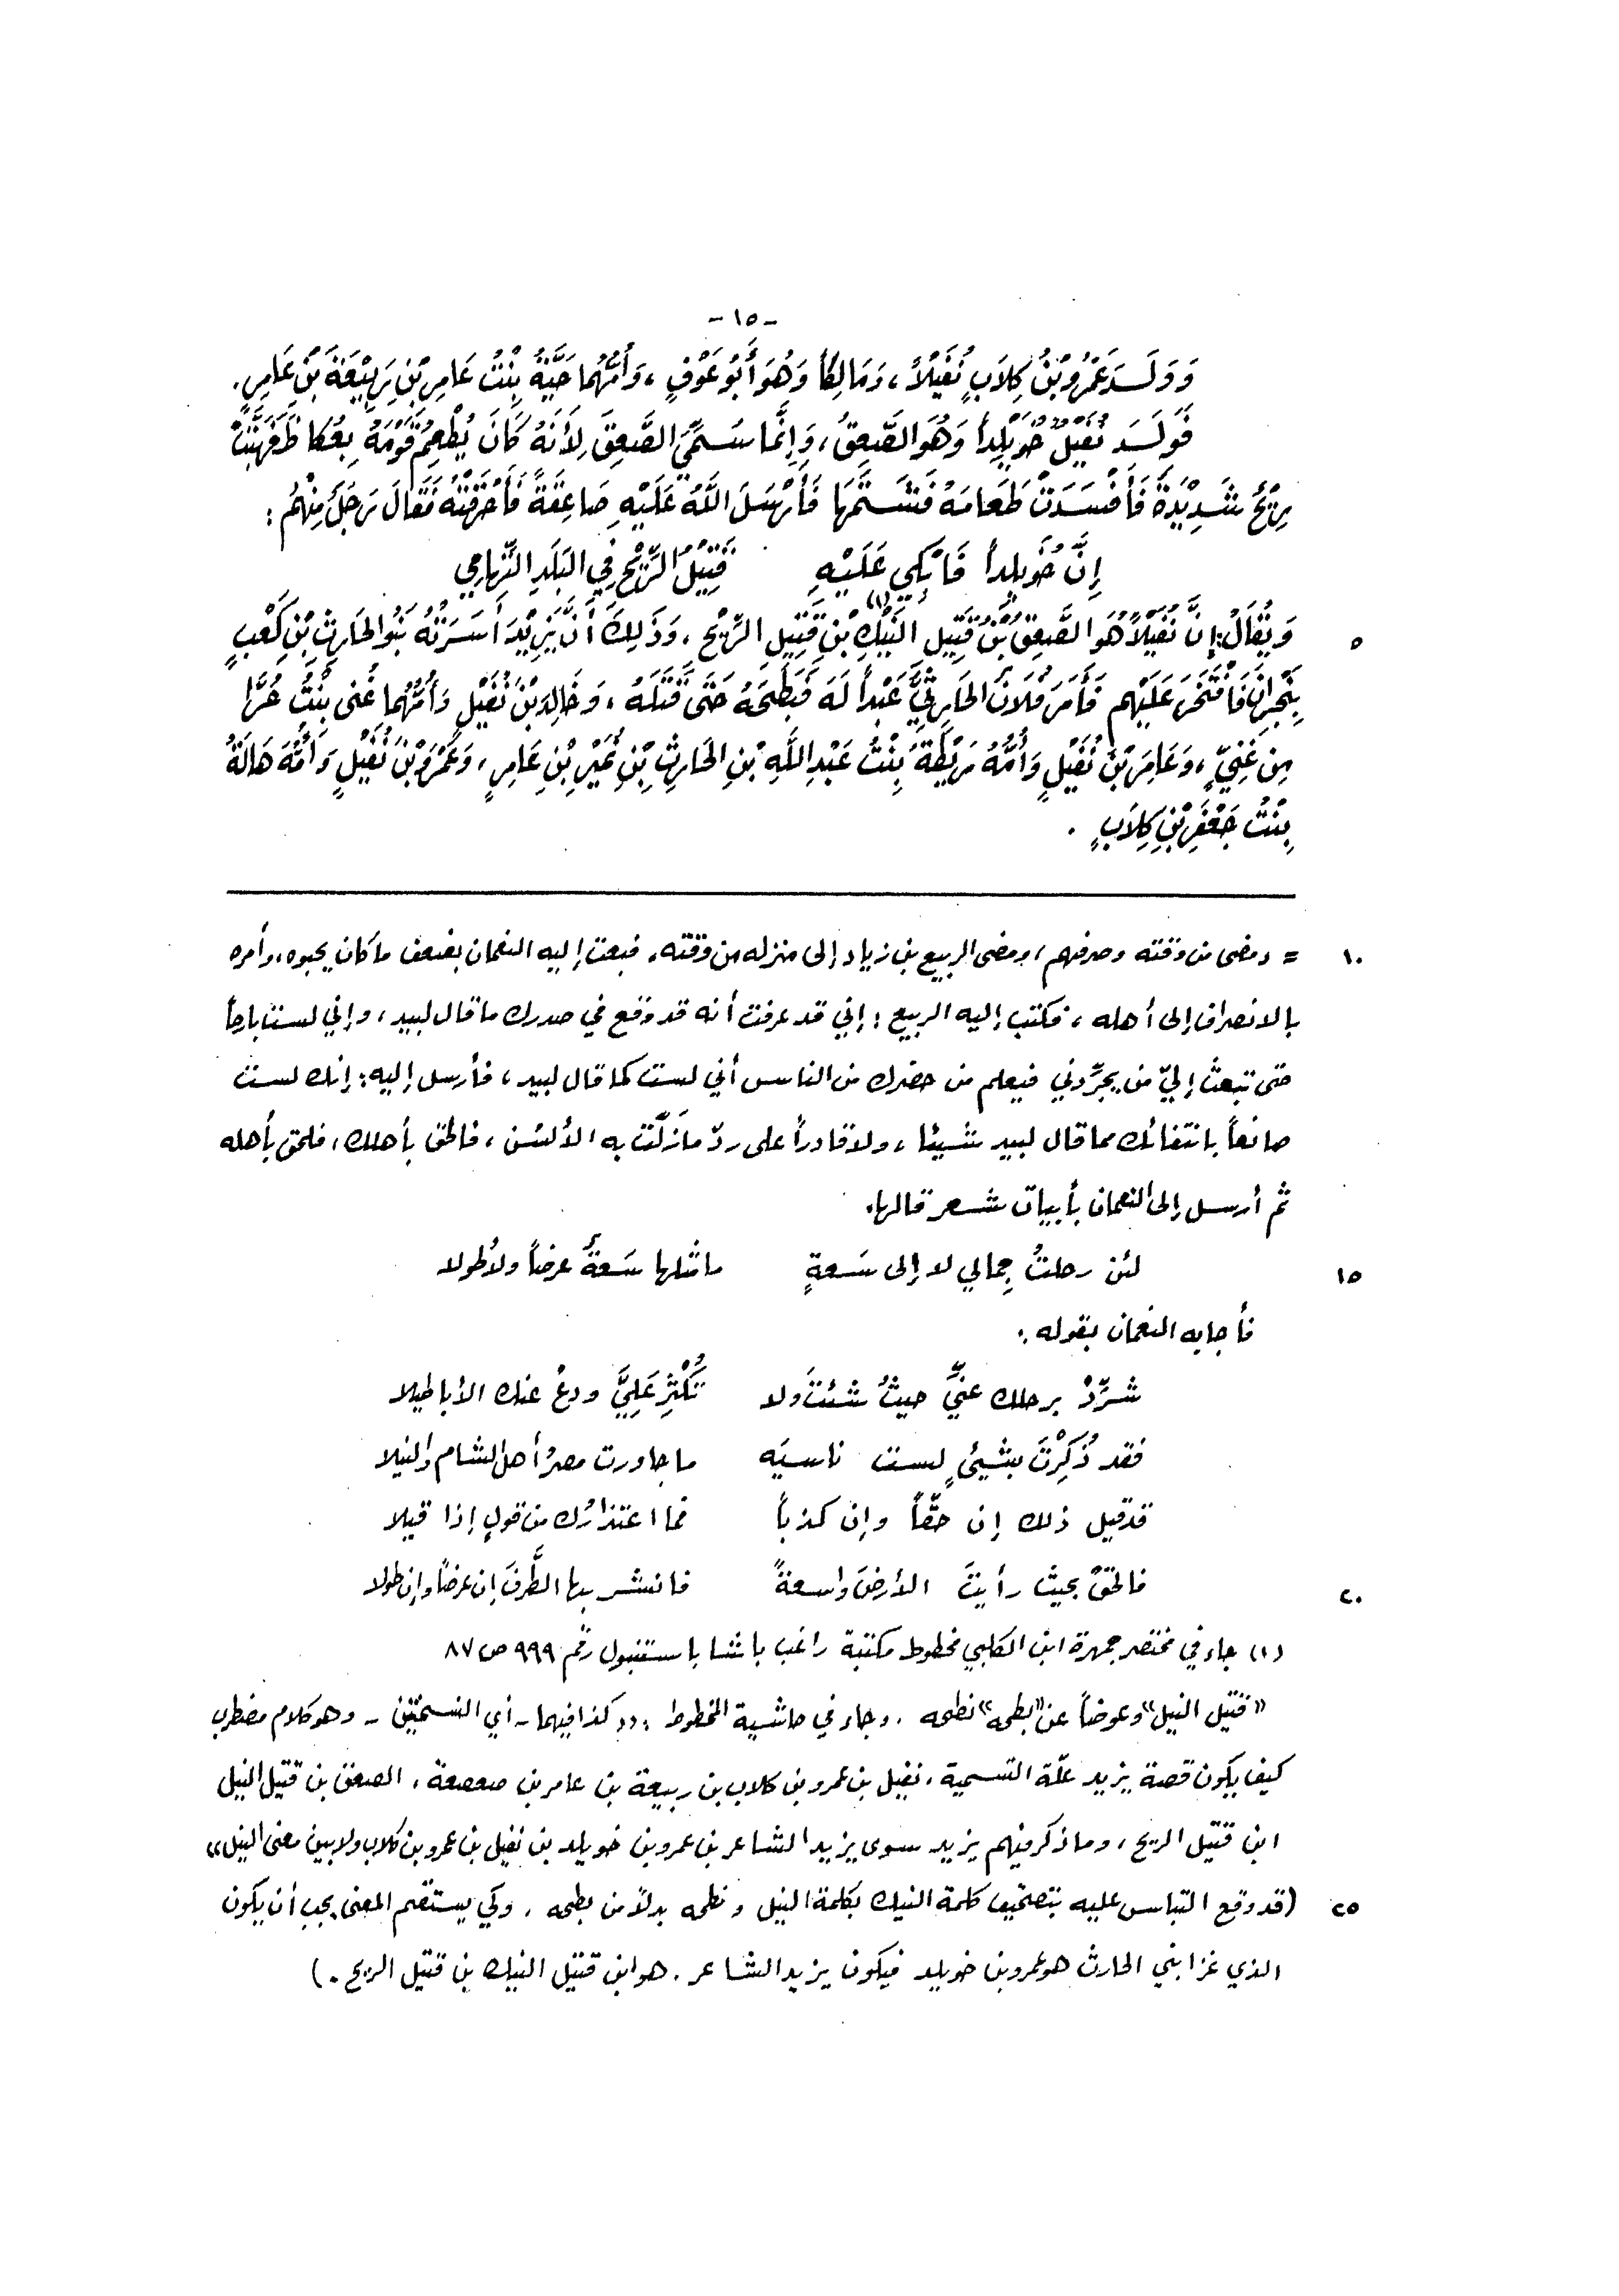 - ١٥ -
وَوَلَـدَ عَمْرُو بْنُ كِلَابٍ نُفَيْلاً، وَمَالِكاً وَهُوَ أَبُو عَوْفٍ، وَأُمُّهُما حَيَّةُ بِنْتُ عَامِرِ بْنِ رَبِيْعَةَ بْنِ عَامِرٍ.
فَوَلَـدَ نُفَيْلٌ خُوَيْلِداً وَهُوَ الصَّعِقُ، وَإِنَّمَا سُـمِّيَ الصَّعِقَ لِأَنَهُ كَانَ يُطْعِمُ قَوْمَهُ بِعُكَاظَ فَهَبَّتْ
رِيْحٌ شَدِيْدَةٌ فَأَفْسَدَتْ طَعَامَهُ فَشَـتَمَهَا فَأَرْسَلَ اللَّهُ عَلَيْهِ صَاعِقَةً فَأَحْرَقَتْهُ فَقَالَ رَجُلٌ مِنْهُم :
إِنَّ خُوَيْلِداً فَابْكِي عَلَيْهِ قَتِيْلُ الرِّيْحِ فِي البَلَدِ التِّهَامِي
٥ وَيُقَالُ: إِنَّ نُفَيْلاً هُوَ الصَّعِقُ بْنُ قَتِيْلِ النَّيْكِ (١) بْنِ قَتِيْلِ الرِّيْحِ، وَذَلِكَ أَنَّ يَزِيْدَ أَسَـرَتْهُ بَنُو الحَارِثِ بْنِ كَعْبٍ
بِنَجْرَانَ فَافْتَخَرَ عَلَيْهِم فَأَمَرَ فُلَانٌ الحَارِثِيُّ عَبْداً لَهُ فَبَطَحَهُ حَتَّى قَتَلَهُ، وَخَالِدَ بْنَ نُفَيْلٍ وَأُمُّهُما غُنَى بِنْتُ حُرَّا
مِن غَنِيٍّ، وَعَامِرَ بْنَ نُفَيْلٍ وَأُمُّهُ رَيْطَةُ بِنْتُ عَبْدِ اللَّهِ بْنِ الحَارِثِ بْنِ نُمَيْرِ بْنِ عَامِرٍ، وَعَمْرَو بْنَ نُفَيْلٍ وَأُمُّهُ هَالَةُ
بِنْتُ جَعْفَرِ بْنِ كِلَابٍ .
١٠ = ومضى من وقته وصرفهم، ومضى الربيع بن زياد إلى منزله من وقته، فبعث إليه النعمان بضعف ما كان يحبوه، وأمره
بالانصراف إلى أهله، فكتب إليه الربيع : إني قد عرفت أنه قد وقع في صدرك ما قال لبيد، وإني لست بارحاً
حتى تبعث إليّ من يجرّدني فيعلم من حضرك من الناس أني لست كما قال لبيد، فأرسل إليه: إنك لست
صانعاً بانتفائك مما قال لبيد شيئاً، ولا قادراً على ردّ ما زلّت به الألسن، فالحق بأهلك، فلحق بأهله
ثم أرسل إلى النعمان بأبيات شعر قالها.
١٥ لئن رحلتُ جِمالي لا إلى سَعةٍ ما مثلها سَعةٌ عرضاً ولا طولا
فأجابه النعمان بقوله :
شرِّدْ برحلك عنّي حيثُ شئتَ ولا تُكْثِرْ عَلَيَّ ودعْ عنك الأباطيلا
فقد ذُكِرْتَ بشيئٍ لست ناسيَه ما جاورت مصرُ أهل الشام والنيلا
قد قيل ذلك إن حقّاً وإن كذباً فما اعتذارُك من قولٍ إذا قيلا
٢٠ فالحقْ بحيث رأيتَ الأرضَ واسعةً فانشر بها الطَّرفَ إن عرضاً وإن طولا
(١) جاء في مختصر جمهرة ابن الكلبي مخطوط مكتبة راغب باشا باستنبول رقم ٩٩٩ ص ٨٧
«قتيل النيل» وعوضاً عن «بطحه» نطحه . وجاء في حاشية المخطوط : «كذا فيهما - أي النسختين - وهو كلام مضطرب
كيف يكون قصة يزيد علّة التسمية، نفيل بن عمرو بن كلاب بن ربيعة بن عامر بن صعصعة، الصعق بن قتيل النيل
ابن قتيل الريح، وما ذكر فيهم يزيد سوى يزيد الشاعر بن عمرو بن خويلد بن نفيل بن عمرو بن كلاب ولا بين معنى النيل»
٢٥ (قد وقع التباس عليه بتصحيف كلمة النيك بكلمة النيل ونطحه بدلاً من بطحه . وكي يستقم المعنى يجب أن يكون
الذي غزا بني الحارث هو عمرو بن خويلد فيكون يزيد الشاعر . هو ابن قتيل النيك بن قتيل الريح .)